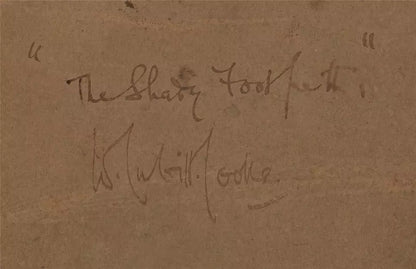 "The Shady Footpath,"
W. Cubitt. Cooke.